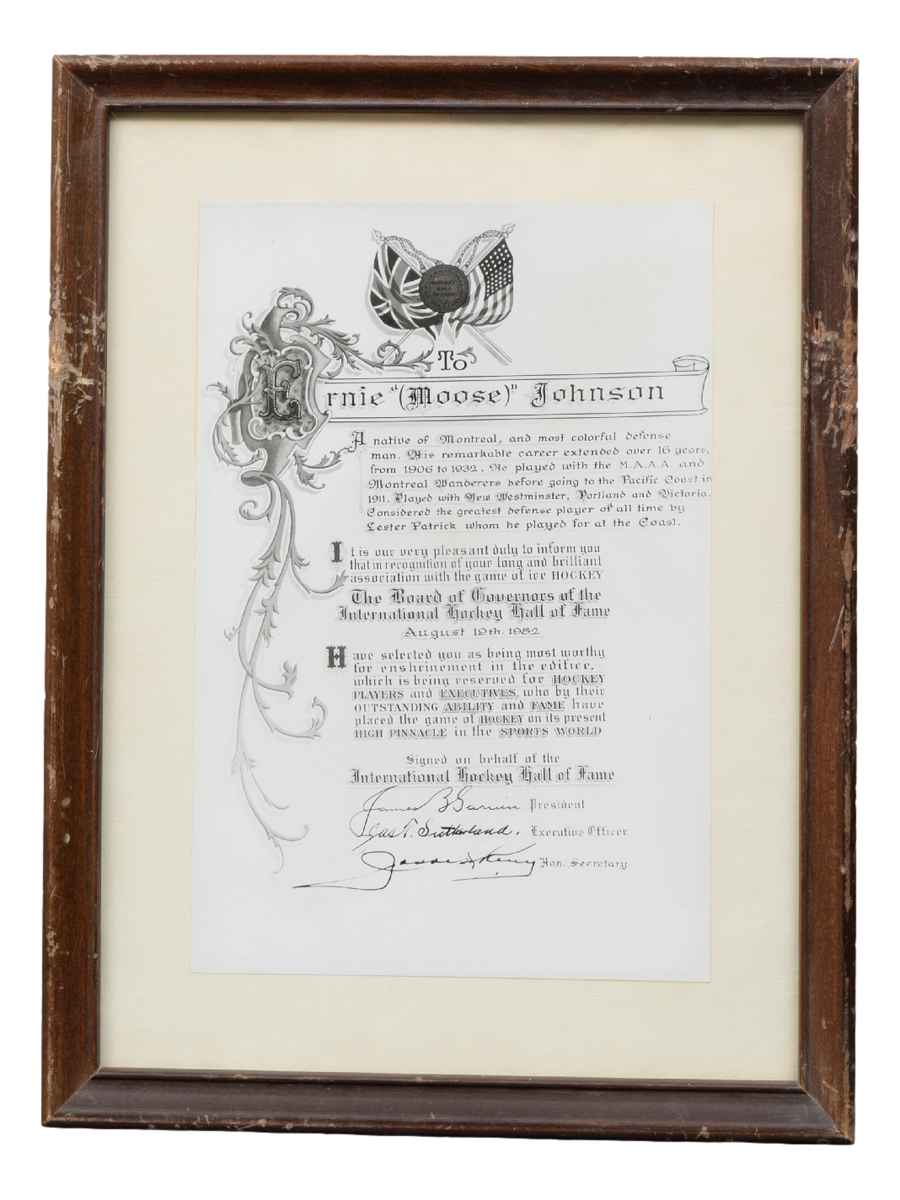 To
Ernie "(Moose)" Johnson
A native of Montreal, and most colorful defense
man. His remarkable career extended over 16 years,
from 1906 to 1932. He played with the M.A.A.A. and
Montreal Wanderers before going to the Pacific Coast in
1911. Played with New Westminster, Portland and Victoria.
Considered the greatest defense player of all time by
Lester Patrick whom he played for at the Coast.
It is our very pleasant duty to inform you
that in recognition of your long and brilliant
association with the game of ice HOCKEY
The Board of Governors of the
International Hockey Hall of Fame
August 19th. 1952
Have selected you as being most worthy
for enshrinement in the edifice,
which is being reserved for HOCKEY
PLAYERS and EXECUTIVES, who by their
OUTSTANDING ABILITY and FAME have
placed the game of HOCKEY on its present
HIGH PINNACLE in the SPORTS WORLD
Signed on behalf of the
International Hockey Hall of Fame
James B Garvin President
Jas T. Sutherland. Executive Officer
Hon. Secretary